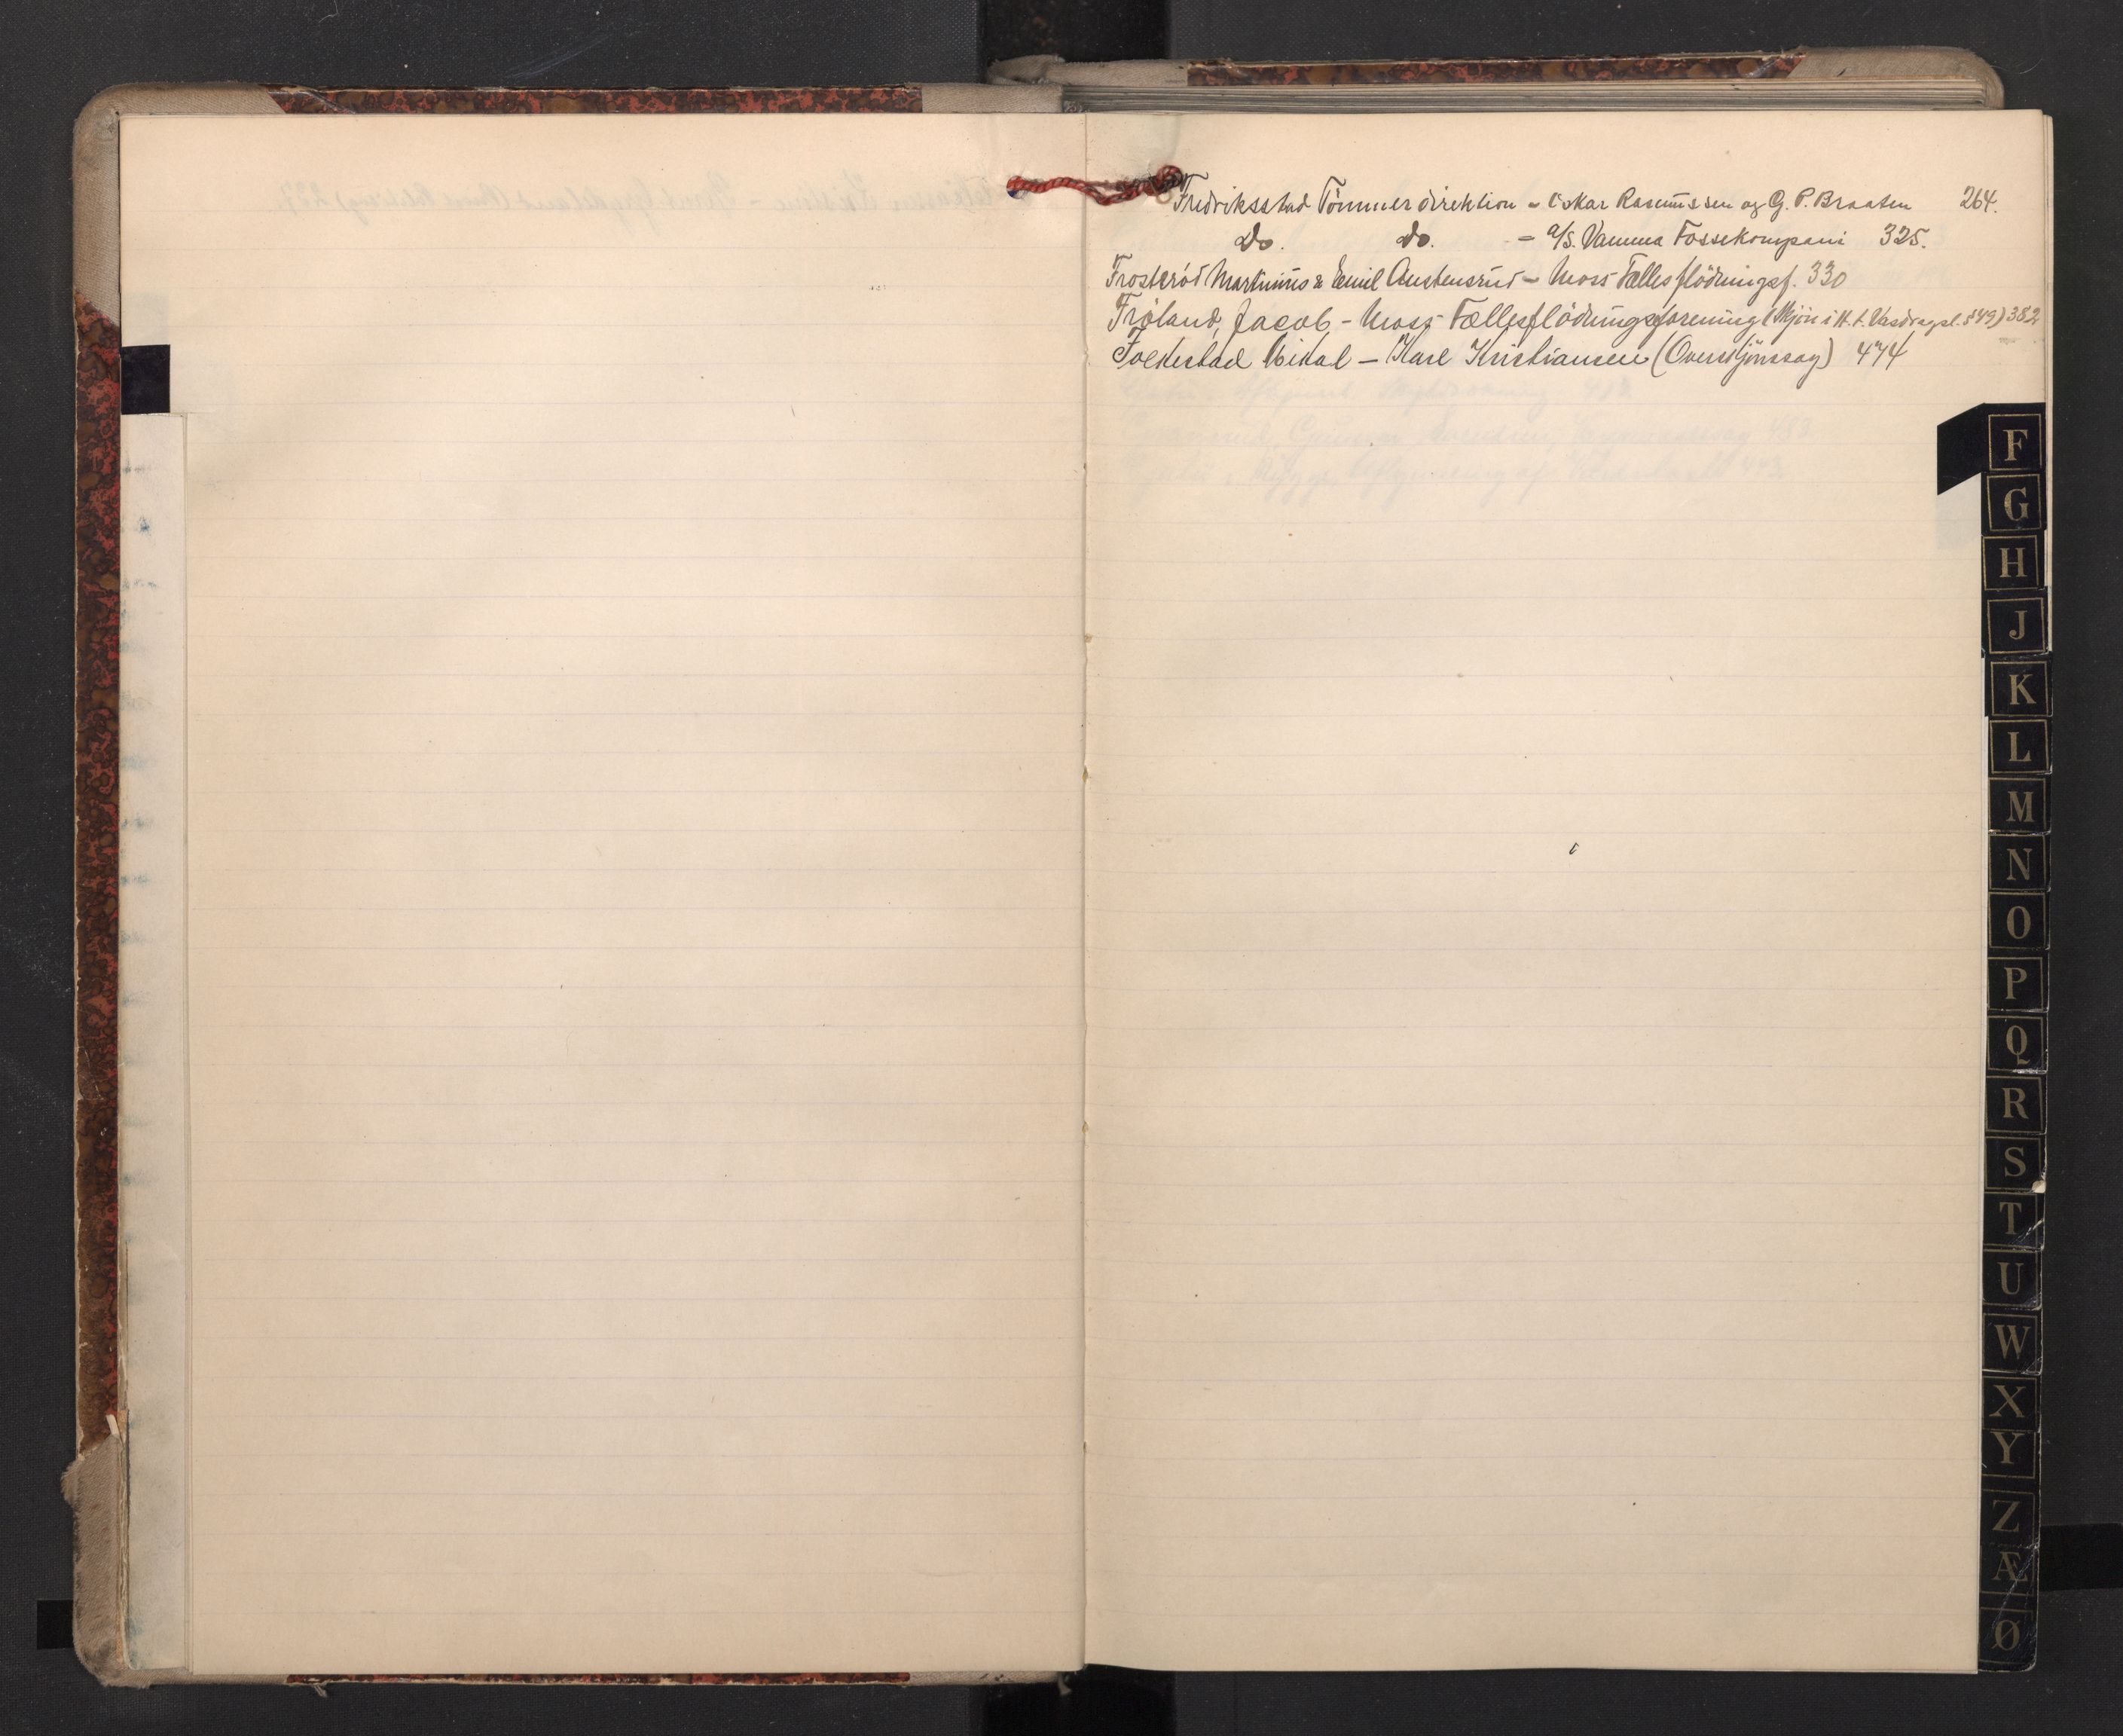 Fredriksstad Tömmerdirektion - Oskar Rasmussen og G. P. Braaten 264.
Do. Do. - A/S. Vamma Fossekompani 325.
Frosteröd Martinius & Emil Austensrud - Moss Fællesflödningsf. 330
Fröland, Jacob, - Moss Fællesflödningsforening (Skjön i H. t. Vasdragsl. § 49) 382
Folkestad - Karl Kristiansen 474
F
G
H
J
K
L
M
N
O
P
Q
R
S
T
U
W
X
Y
Z
Æ
Ø